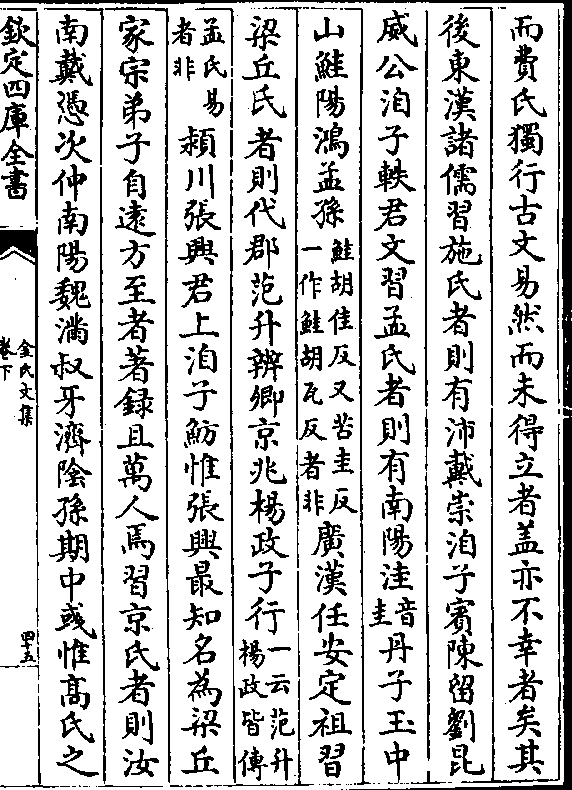 而費氏獨行古文易然而未得立者盖亦不幸者矣其
後東漢諸儒習施氏者則有沛戴崇洎子賓陳留劉昆
威公洎子軼君文習孟氏者則有南陽洼音圭丹子玉中
山鮭陽鴻孟孫鮭胡佳反又苦圭反一作鮭胡瓦反者非廣漢任安定祖習
梁丘氏者則代郡范升辨卿京兆楊政子行一云范升楊政皆傳
孟氏易者非潁川張興君上洎子魴惟張興最知名為梁丘
家宗弟子自遠方至者著録且萬人焉習京氏者則汝
南戴憑次仲南陽魏滿叔牙濟陰孫期中彧惟高氏之
欽定四庫全書
金氏文集
卷下
四十五